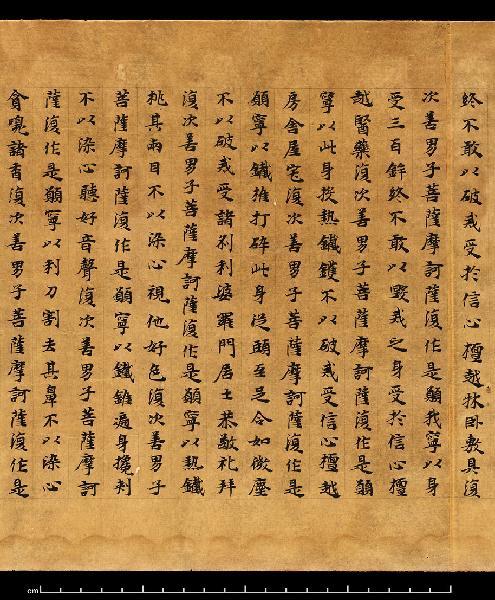 終不敢以破戒受於信心檀越牀卧敷具復
次善男子菩薩摩訶薩復作是願我寧以身
受三百鉾終不敢以毀戒之身受於信心檀
越醫藥復次善男子菩薩摩訶薩復作是願
寧以此身投熱鐵鑊不以破戒受信心檀越
房舍屋宅復次善男子菩薩摩訶薩復作是
願寧以鐵椎打碎此身從頭至足令如微塵
不以破戒受諸剎利婆羅門居士恭敬礼拜
復次善男子菩薩摩訶薩復作是願寧以熱鐵
挑其兩目不以染心視他好色復次善男子
菩薩摩訶薩復作是願寧以鐵錐遍身攙刺
不以染心聽好音聲復次善男子菩薩摩訶
薩復作是願寧以利刀割去其鼻不以染心
貪嗅諸香復次善男子菩薩摩訶薩復作是
cm